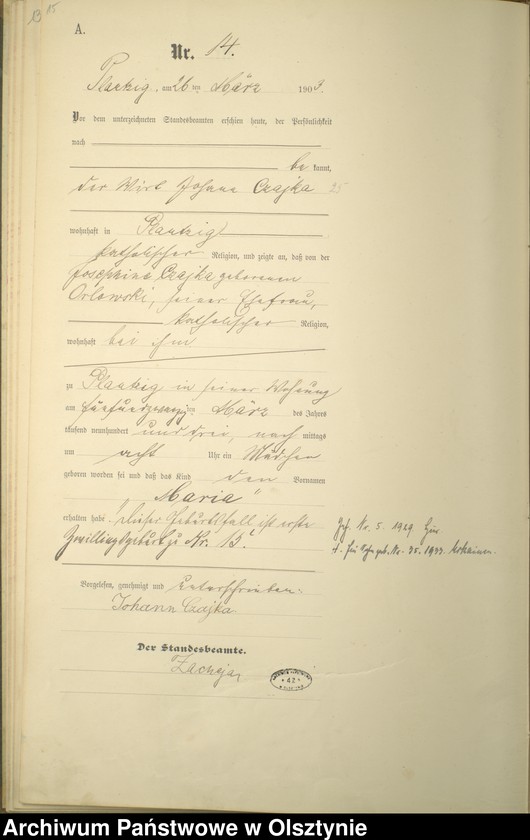 13 15
A.
Nr. 14.
Plautzig, am 26 ten März 1903.
Vor dem unterzeichneten Standesbeamten erschien heute, der Persönlichkeit
nach
be kannt,
der Wirt Johann Czajka 25
wohnhaft in Plautzig
katholischer Religion, und zeigte an, daß von der
Josephine Czajka geborenen
Orlowski, seiner Ehefrau,
katholischer Religion,
wohnhaft bei ihm
zu Plautzig in seiner Wohnung
am fünfundzwanzigsten März des Jahres
tausend neunhundert und drei, nach mittags
um acht Uhr ein Mädchen
geboren worden sei und daß das Kind den Vornamen
"Maria"
erhalten habe. Dieser Geburtsfall ist erste
Zwillingsgeburt zu Nr. 15.
Geh. Nr. 5. 1929 hier
Nr. 35. 1933.
Vorgelesen, genehmigt und unterschrieben.
Johann Czajka
Der Standesbeamte.
42
Archiwum Państwowe w Olsztynie